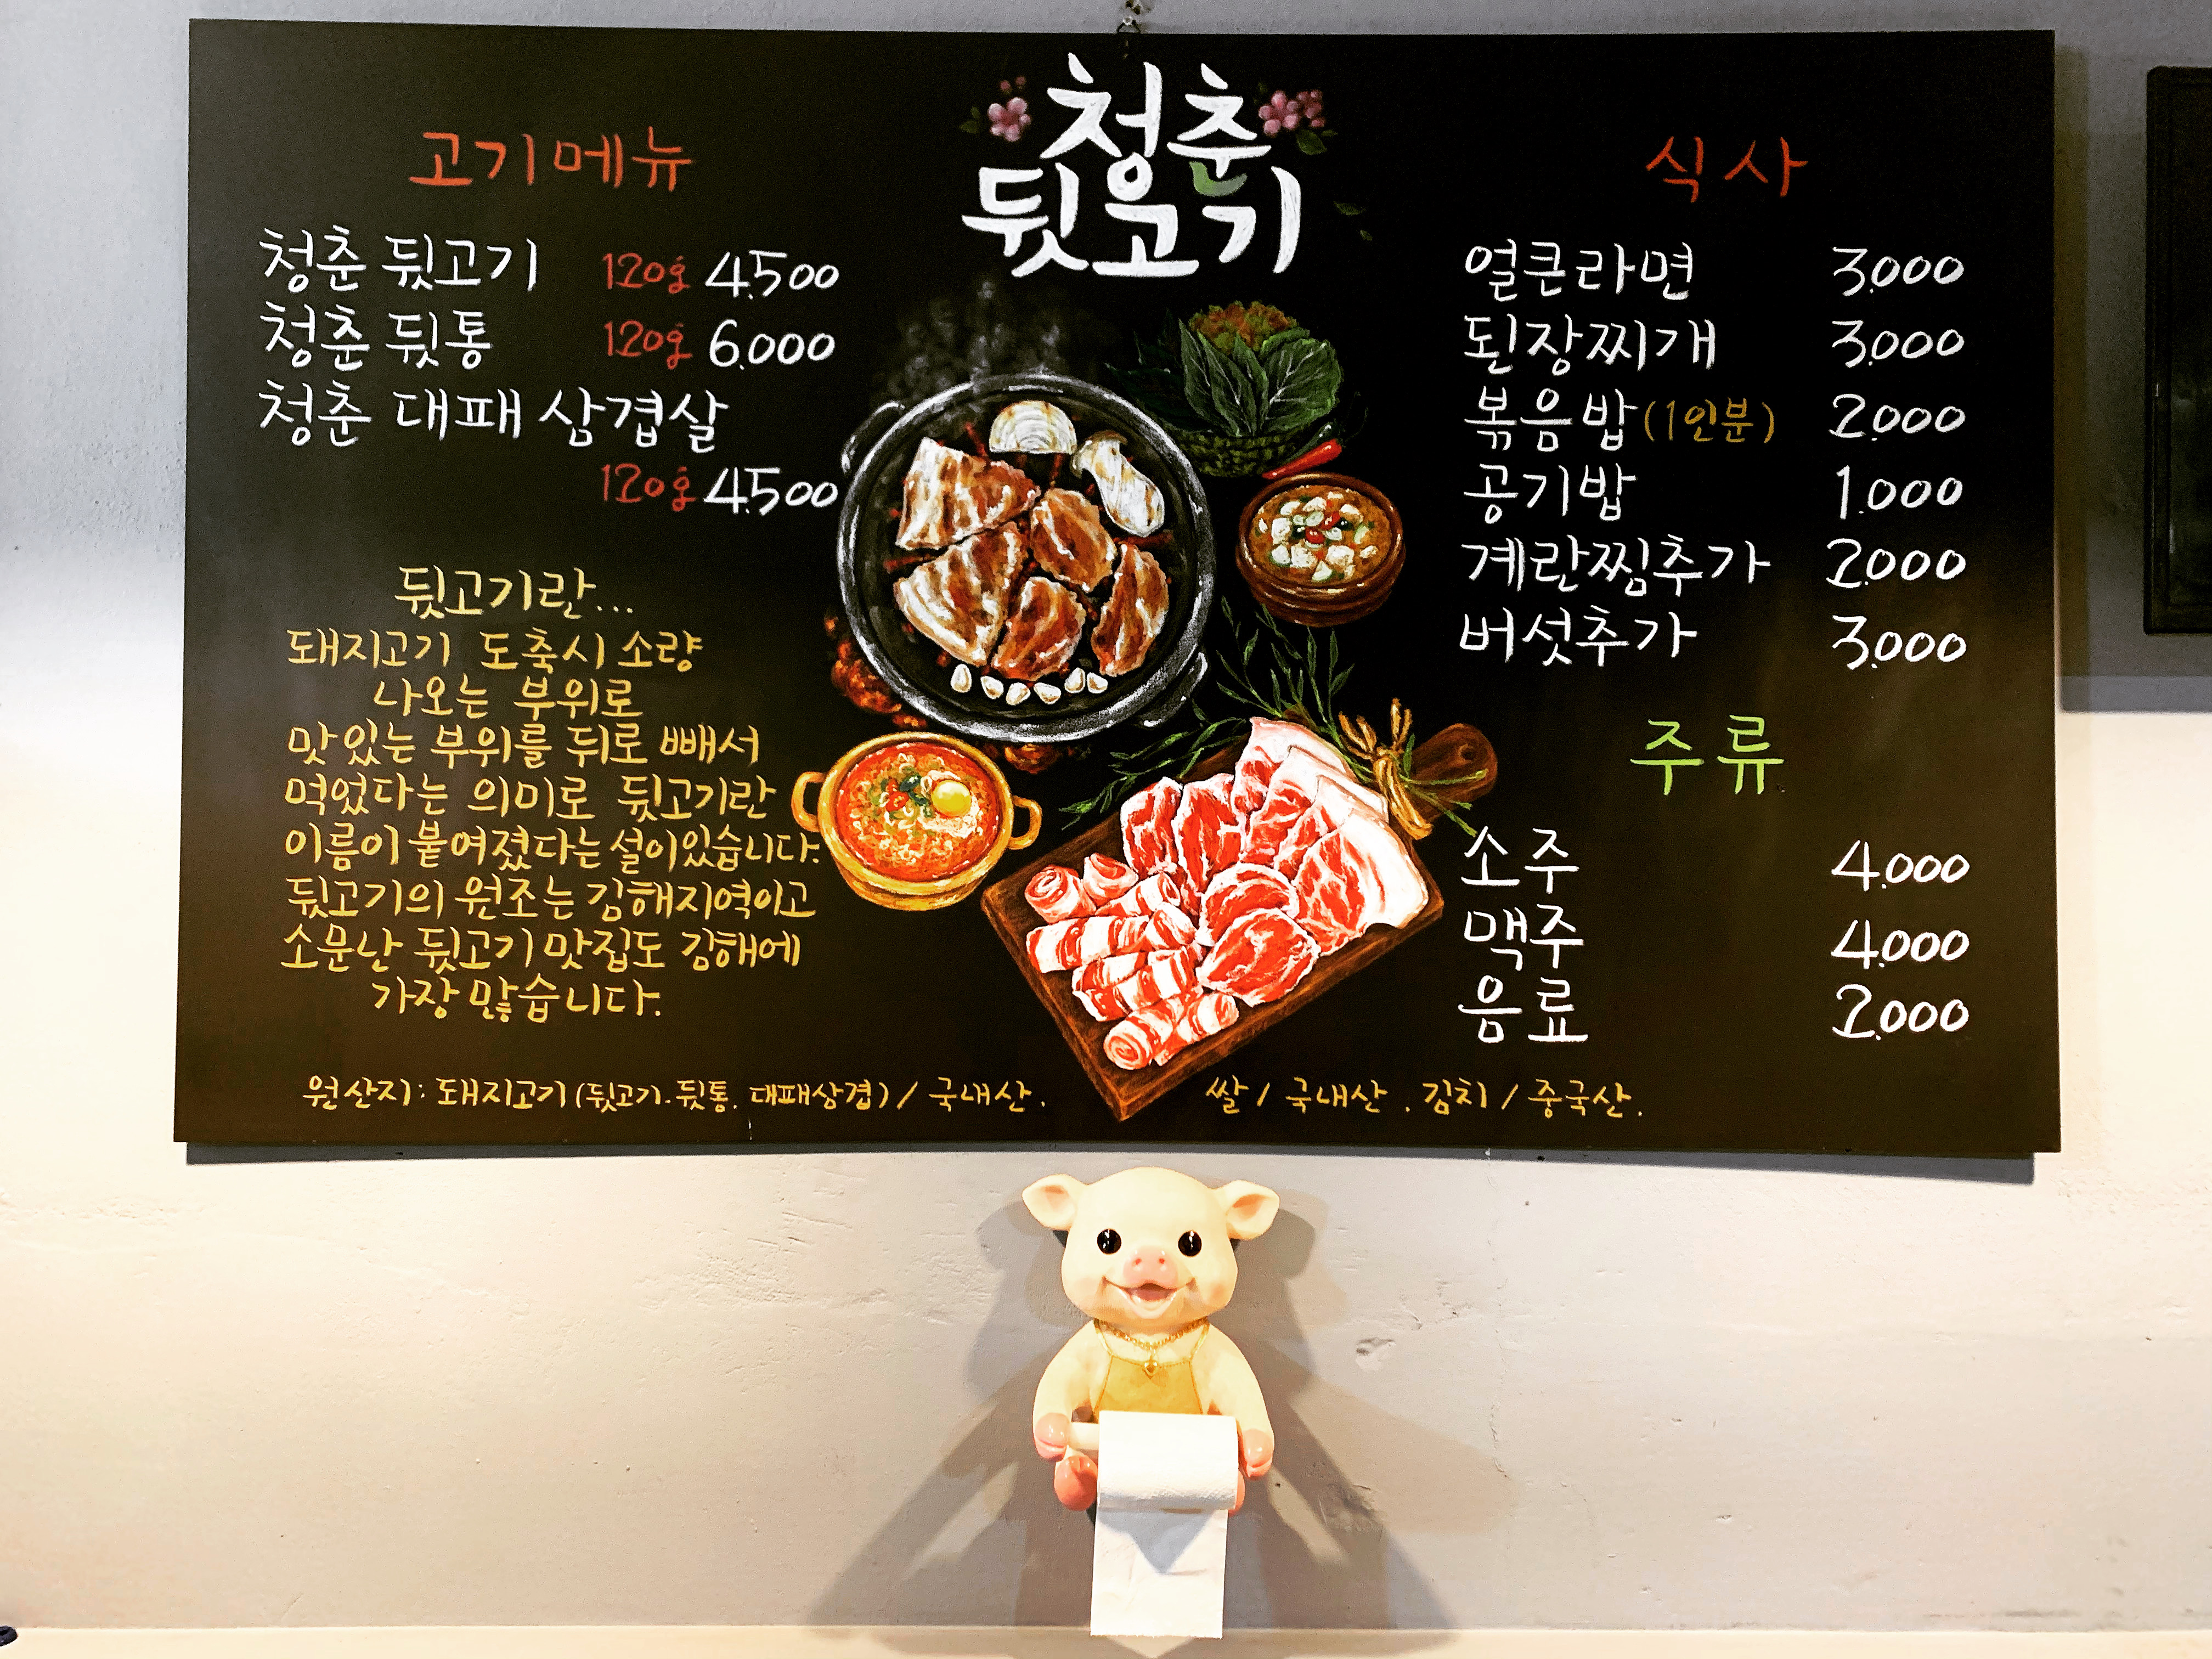 청춘
뒷고기
고기메뉴
청춘 뒷고기 120g 4.500
청춘 뒷통 120g 6.000
청춘 대패 삼겹살
120g 4.500
뒷고기란...
돼지고기 도축시 소량
나오는 부위로
맛있는 부위를 뒤로 빼서
먹었다는 의미로 뒷고기란
이름이 붙여졌다는 설이있습니다.
뒷고기의 원조는 김해지역이고
소문난 뒷고기 맛집도 김해에
가장 많습니다.
식사
얼큰라면 3.000
된장찌개 3.000
볶음밥(1인분) 2.000
공기밥 1.000
계란찜추가 2.000
버섯추가 3.000
주류
소주 4.000
맥주 4.000
음료 2.000
원산지: 돼지고기(뒷고기.뒷통. 대패삼겹) / 국내산.
쌀 / 국내산 . 김치 / 중국산.